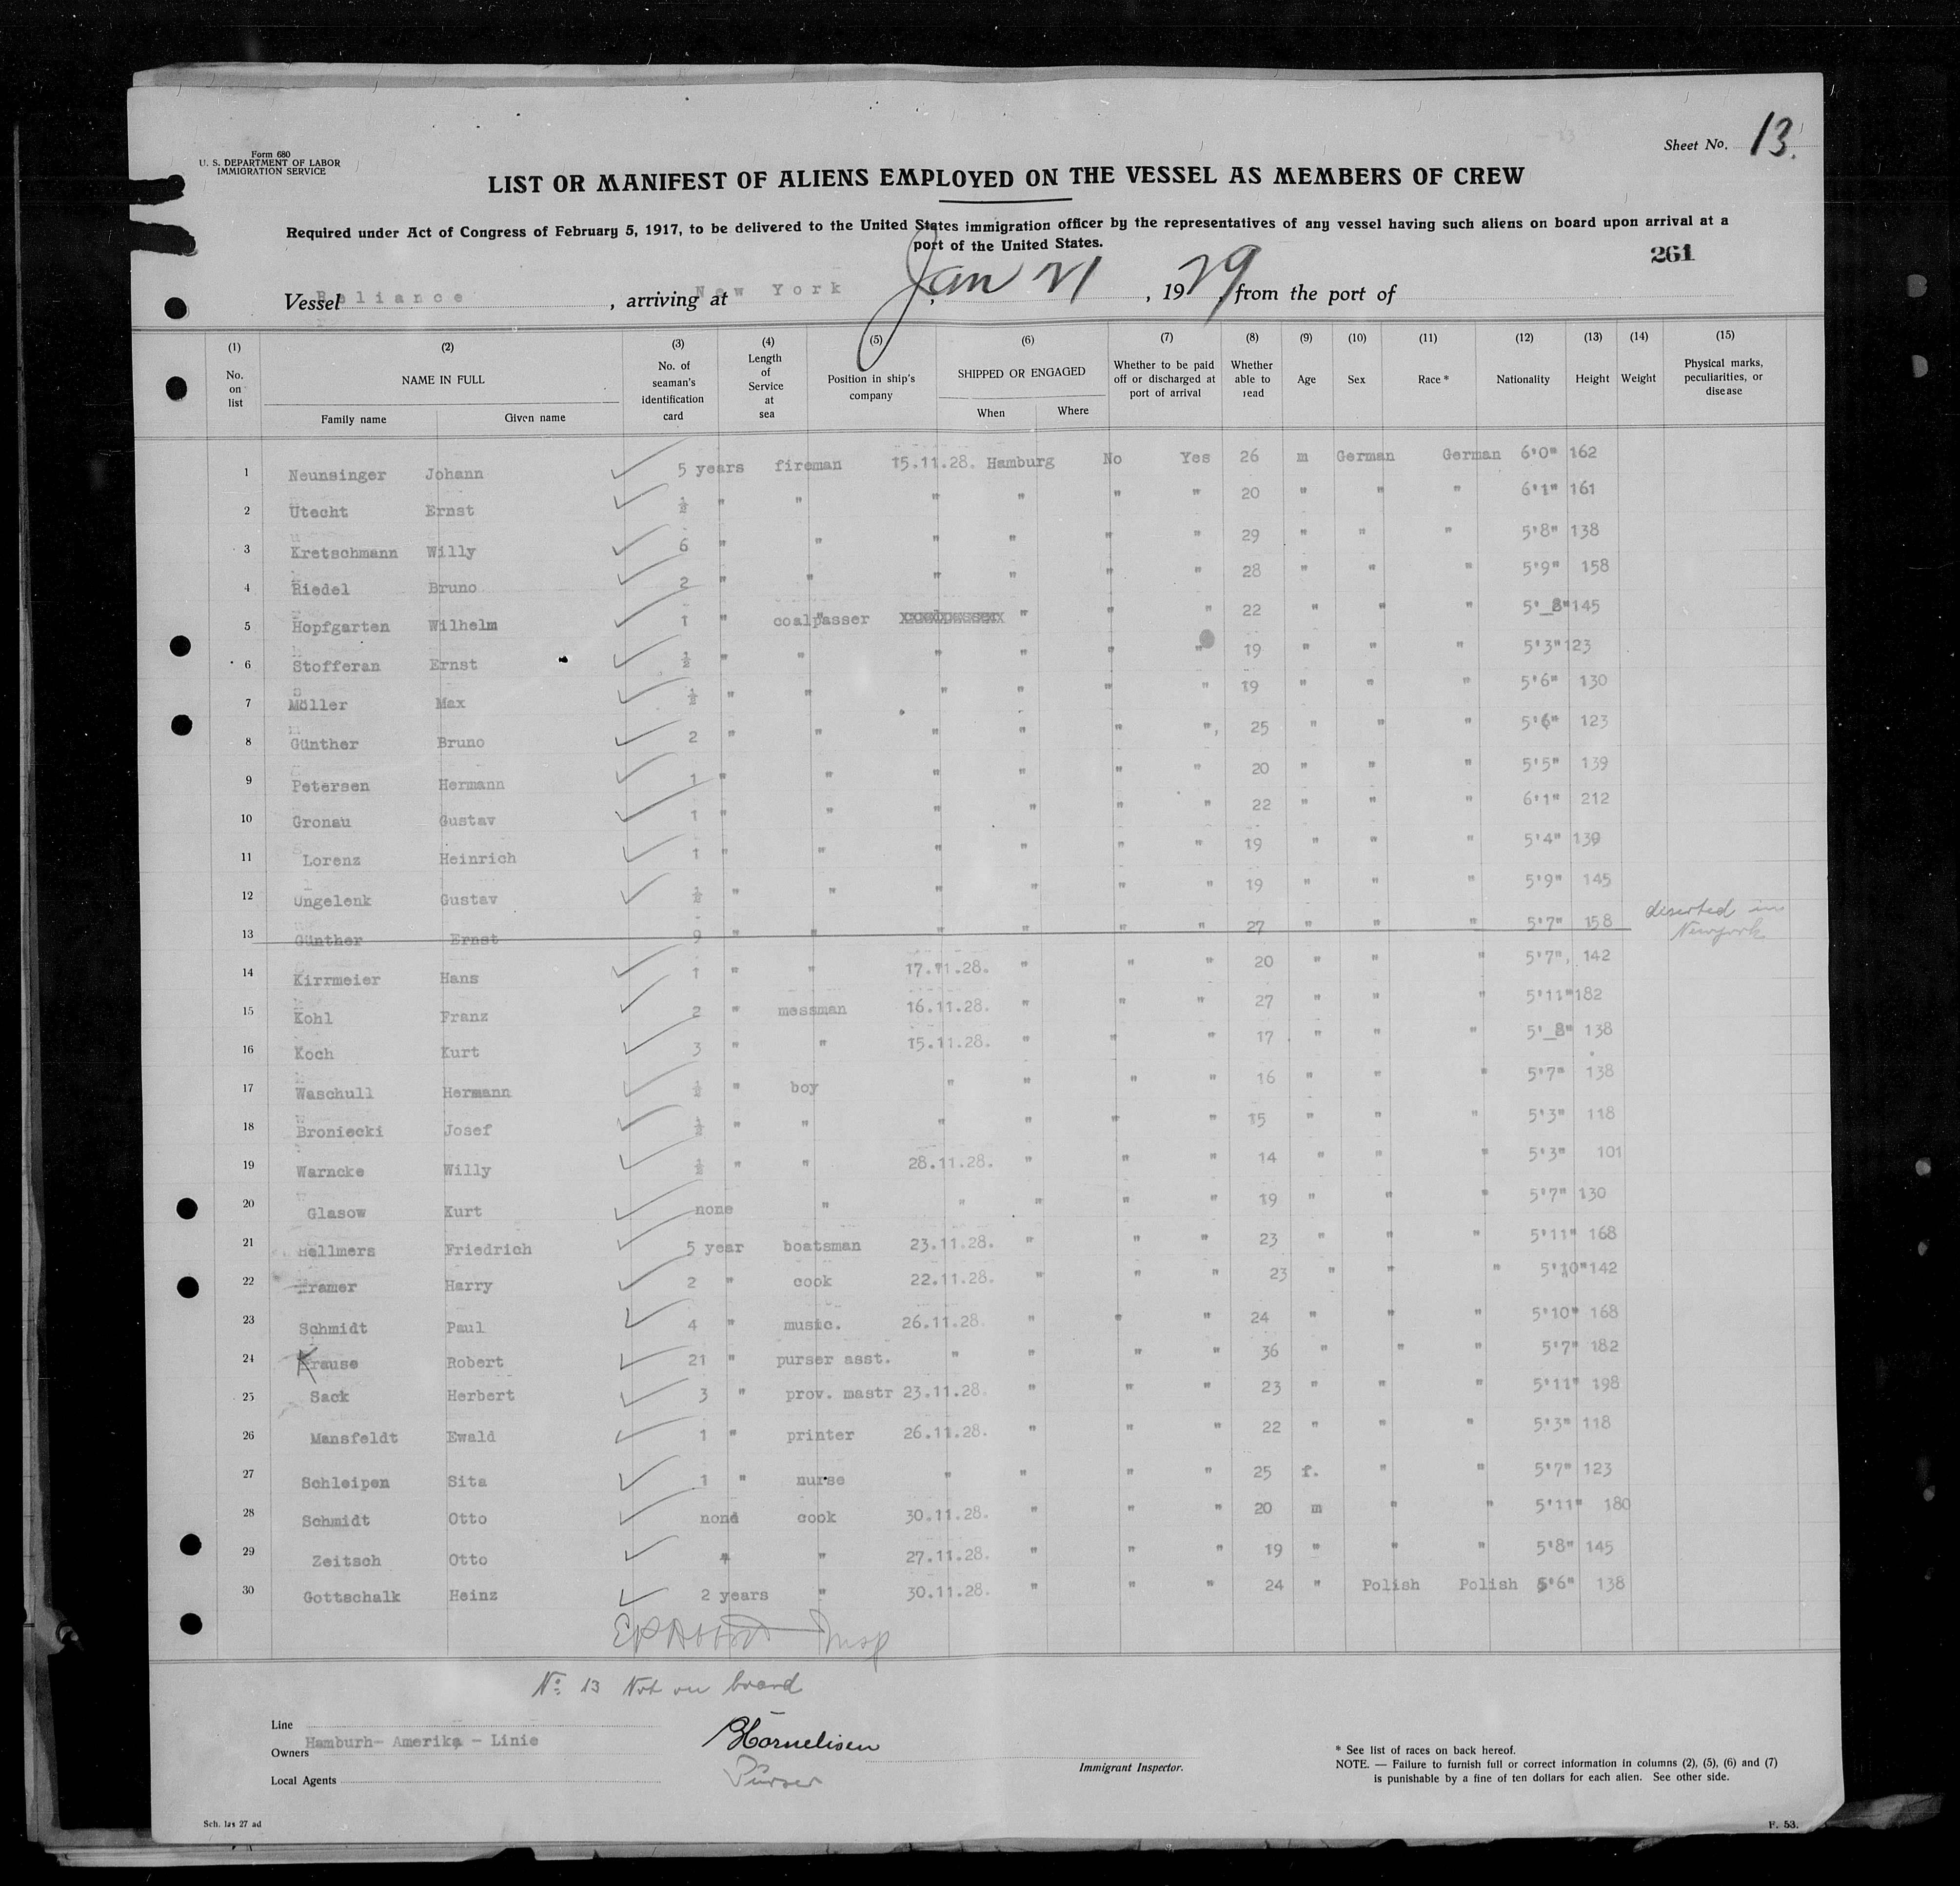 Form 680
U. S. DEPARTMENT OF LABOR
IMMIGRATION SERVICE
Sheet No. 13.
LIST OR MANIFEST OF ALIENS EMPLOYED ON THE VESSEL AS MEMBERS OF CREW
Required under Act of Congress of February 5, 1917, to be delivered to the United States immigration officer by the representatives of any vessel having such aliens on board upon arrival at a
port of the United States.
261
Vessel Reliance, arriving at New York, Jan 21, 1929, from the port of
(1) (2) (3) (4) (5) (6) (7) (8) (9) (10) (11) (12) (13) (14) (15)
No. on list NAME IN FULL Family name Given name No. of seaman's identification card Length of Service at sea Position in ship's company SHIPPED OR ENGAGED When Where Whether to be paid off or discharged at port of arrival Whether able to read Age Sex Race * Nationality Height Weight Physical marks, peculiarities, or disease
1 Neunsinger Johann 5 years fireman 15.11.28. Hamburg No Yes 26 m German German 6'0" 162
2 Utecht Ernst ½ " " " " " " 20 " " " 6'1" 161
3 Kretschmann Willy 6 " " " " " " 29 " " " 5'8" 138
4 Riedel Bruno 2 " " " " " " 28 " " " 5'9" 158
5 Hopfgarten Wilhelm 1 " coalpasser " " " 22 " " " 5'_8" 145
6 Stofferan Ernst ½ " " " " " " 19 " " " 5'3" 123
7 Möller Max ½ " " " " " " 19 " " " 5'6" 130
8 Günther Bruno 2 " " " " " " 25 " " " 5'6" 123
9 Petersen Hermann 1 " " " " " " 20 " " " 5'5" 139
10 Gronau Gustav 1 " " " " " " 22 " " " 6'1" 212
11 Lorenz Heinrich 1 " " " " " " 19 " " " 5'4" 139
12 Ungelenk Gustav ½ " " " " " " 19 " " " 5'9" 145
13 Günther Ernst 9 " " " " " " 27 " " " 5'7" 158 deserted in Newyork
14 Kirrmeier Hans 1 " " 17.11.28. " " " 20 " " " 5'7" 142
15 Kohl Franz 2 " messman 16.11.28. " " " 27 " " " 5'11" 182
16 Koch Kurt 3 " " 15.11.28. " " " 17 " " " 5'_8" 138
17 Waschull Hermann ½ " boy " " " " 16 " " " 5'7" 138
18 Broniecki Josef ½ " " " " " " 15 " " " 5'3" 118
19 Warncke Willy ½ " " 28.11.28. " " " 14 " " " 5'3" 101
20 Glasow Kurt none " " " " " 19 " " " 5'7" 130
21 Hellmers Friedrich 5 year boatsman 23.11.28. " " " 23 " " " 5'11" 168
22 Kramer Harry 2 " cook 22.11.28. " " " 23 " " " 5'10" 142
23 Schmidt Paul 4 " music. 26.11.28. " " " 24 " " " 5'10" 168
24 Krause Robert 21 " purser asst. " " " " 36 " " " 5'7" 182
25 Sack Herbert 3 " prov. mastr 23.11.28. " " " 23 " " " 5'11" 198
26 Mansfeldt Ewald 1 " printer 26.11.28. " " " 22 " " " 5'3" 118
27 Schleipen Sita 1 " nurse " " " " 25 f. " " 5'7" 123
28 Schmidt Otto none cook 30.11.28. " " " 20 m " " 5'11" 180
29 Zeitsch Otto " " 27.11.28. " " " 19 " " " 5'8" 145
30 Gottschalk Heinz 2 years " 30.11.28. " " " 24 " Polish Polish 5'6" 138
Insp
No. 13 Not on board
Line
Hamburh- Amerika - Linie
Owners
Local Agents
Cornelisen
Purser
Immigrant Inspector.
* See list of races on back hereof.
NOTE. — Failure to furnish full or correct information in columns (2), (5), (6) and (7)
is punishable by a fine of ten dollars for each alien. See other side.
Sch. las 27 ad
F. 53.